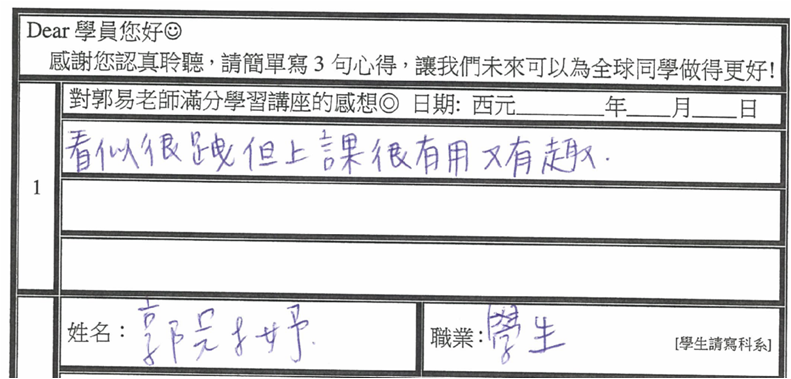 Dear 學員您好☺
感謝您認真聆聽，請簡單寫 3 句心得，讓我們未來可以為全球同學做得更好!
對郭易老師滿分學習講座的感想◎ 日期: 西元________年____月____日
看似很跩但上課很有用又有趣.
1
姓名：郭 妤
職業:學生 [學生請寫科系]